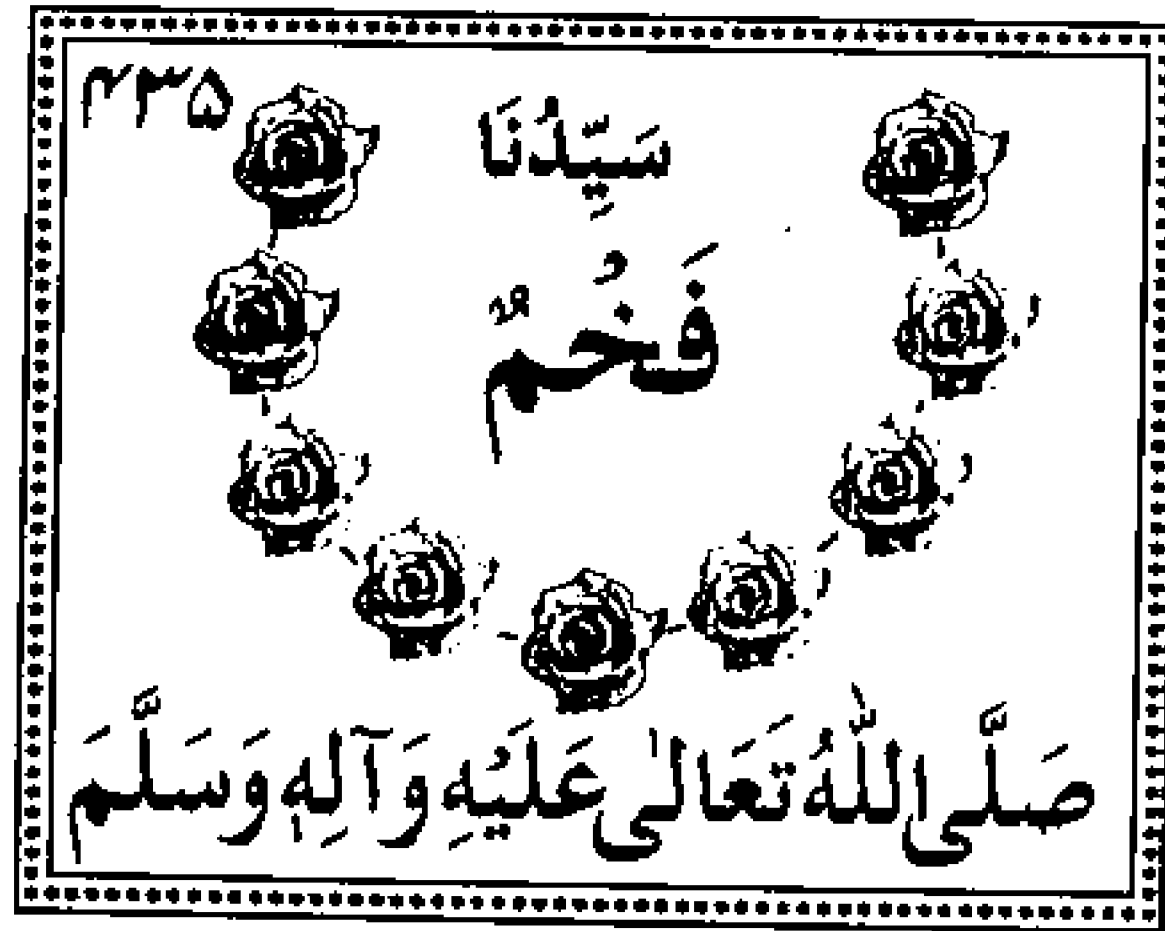 ۴۳۵
سَيِّدُنَا
فَخْمٌ
صَلَّى اللّٰهُ تَعَالٰى عَلَيْهِ وَآلِهٖ وَسَلَّمَ